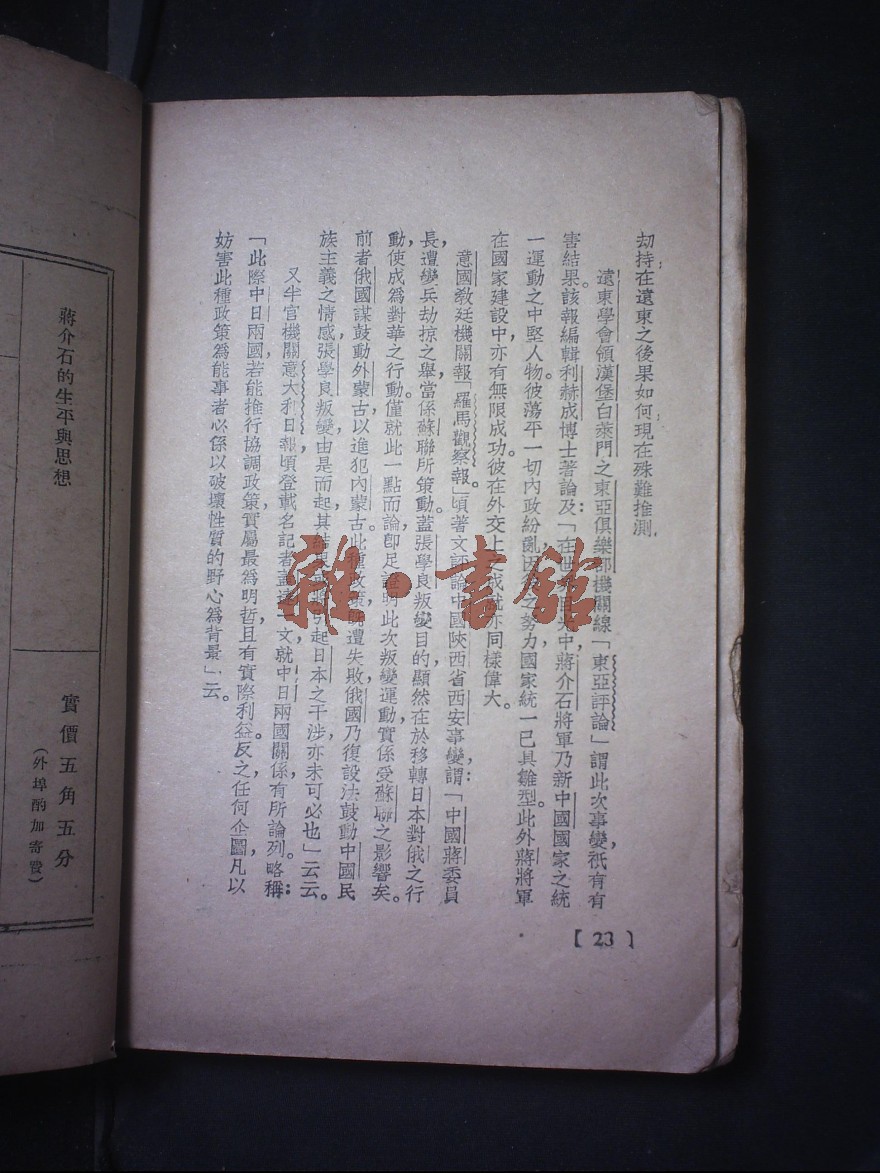 劫持在遠東之後果如何,現在殊難推測,
遠東學會領漢堡白萊門之東亞俱樂部機關線「東亞評論」謂此次事變,祇有有
害結果。該報編輯利赫成博士著論及:「在世界中,蔣介石將軍乃新中國國家之統
一運動之中堅人物。彼蕩平一切內政紛亂,之努力,國家統一已具雛型。此外蔣將軍
在國家建設中,亦有無限成功。彼在外交上之成就亦同樣偉大。
意國敎廷機關報「羅馬觀察報」頃著文評論中國陝西省西安事變,謂:「中國蔣委員
長,遭變兵劫掠之舉,當係蘇聯所策動。蓋張學良叛變目的,顯然在於移轉日本對俄之行
動,使成爲對華之行動。僅就此一點而論,卽足證明此次叛變運動,實係受蘇聯之影響矣。
前者俄國謀鼓動外蒙古,以進犯內蒙古。此種政策旣遭失敗,俄國乃復設法鼓動中國民
族主義之情感,張學良叛變,由是而起。其結果或將引起日本之干涉,亦未可必也」云云。
又半官機關意大利日報,頃登載名記者蓋達一文,就中日兩國關係,有所論列。略稱:
「此際中日兩國,若能推行協調政策,實屬最爲明哲,且有實際利益。反之,任何企圖,凡以
妨害此種政策爲能事者,必係以破壞性質的野心爲背景」云。
【23】
蔣介石的生平與思想
實價五角五分
(外埠酌加寄費)
雜·書館